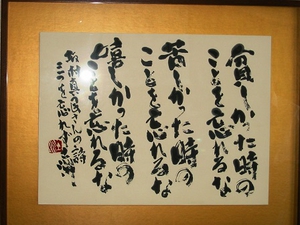 貧しかった時の
ことを忘れるな
苦しかった時の
ことを忘れるな
嬉しかった時の
ことを忘れるな
坂村真民さんの詩
三つを忘れず